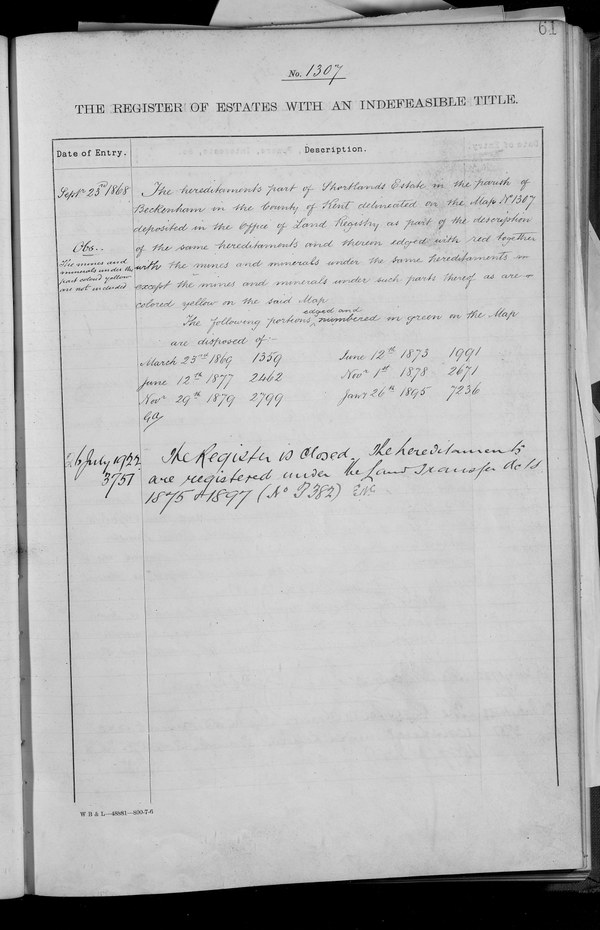 61
No. 1307
THE REGISTER OF ESTATES WITH AN INDEFEASIBLE TITLE.
Date of Entry.
Description.
Septr 23rd 1868
The hereditaments part of Shortlands Estate in the parish of
Beckenham in the County of Kent delineated on the Map No 1307
deposited in the office of Land Registry as part of the description
of the same hereditaments and therein edged with red together
with the mines and minerals under the same hereditaments
except the mines and minerals under such parts thereof as are
colored yellow on the said Map
Obs..
The mines and
minerals under the
part colored yellow
are not included
The following portions edged and numbered in green on the Map
are disposed of:-
March 23rd 1869 1359 June 12th 1873 1991
June 12th 1877 2462 Novr 1st 1878 2671
Novr 29th 1879 2799 Jany 26th 1895 7236
6 July 1922
3751
The Register is Closed. The hereditaments
are registered under the Land Transfer Acts
1875 & 1897 (No P382)
W B & L—48881—800-7-6